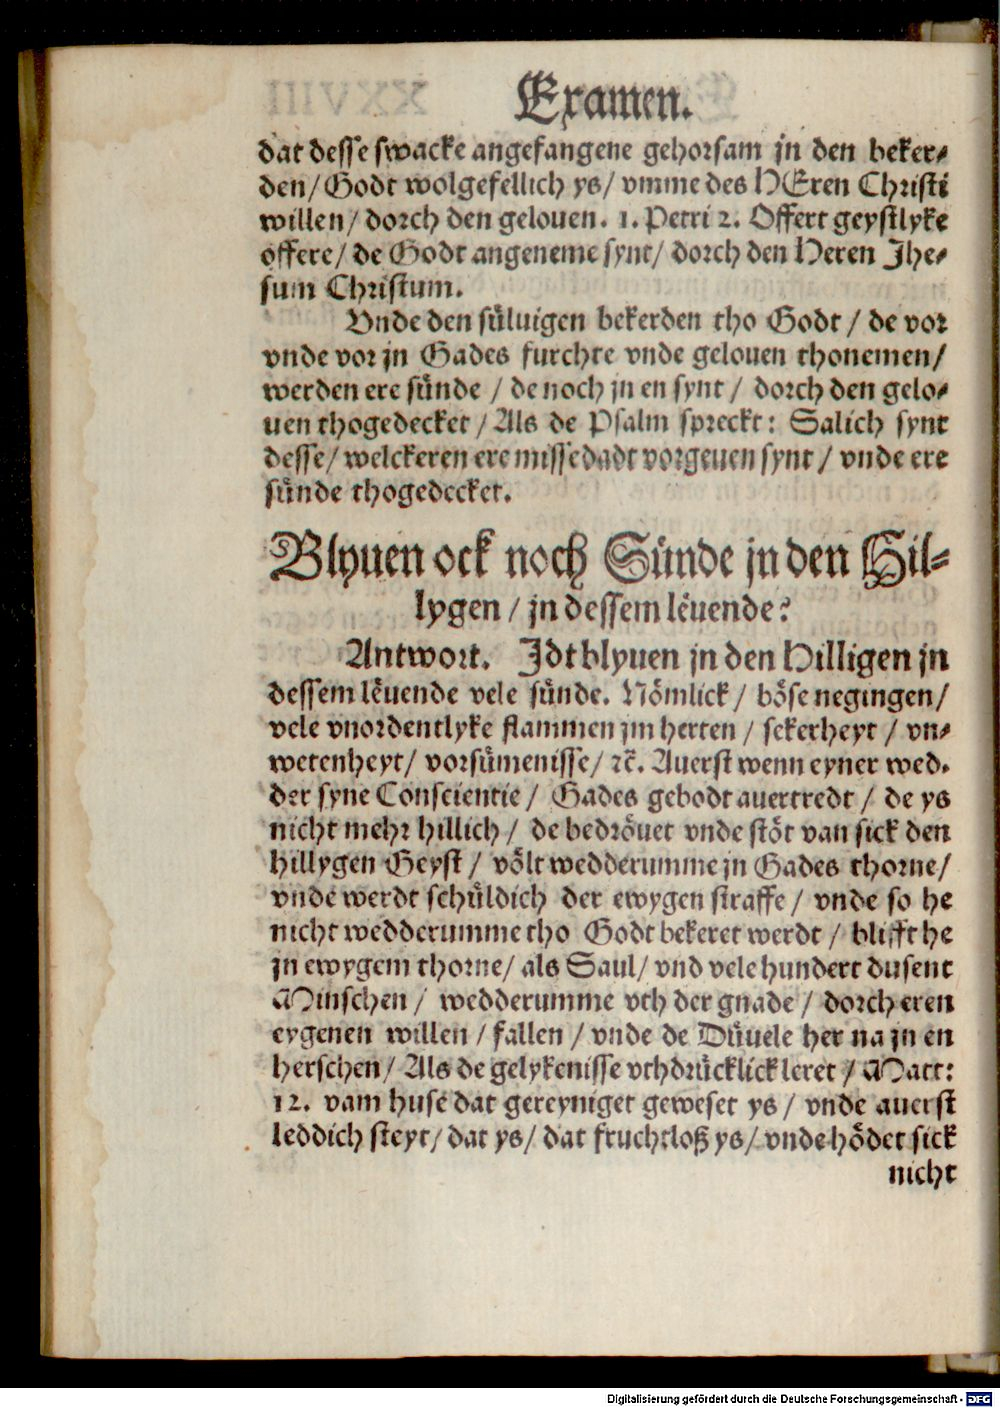 Examen.
dat desse swacke angefangene gehorsam jn den beker-
den/ Godt wolgefellich ys/ vmme des HEren Christi
willen/ dorch den gelouen. 1. Petri 2. Offert geystlyke
offere/ de Godt angeneme synt/ dorch den Heren Jhe-
sum Christum.
Vnde den süluigen bekerden tho Godt / de vor
vnde vor jn Gades furchte vnde gelouen thonemen/
werden ere sünde / de noch jn en synt / dorch den gelo-
uen thogedecket / Als de Psalm spreckt: Salich synt
desse/ welckeren ere missedadt vorgeuen synt / vnde ere
sünde thogedecket.
Blyuen ock noch Sünde jn den Hil-
lygen / jn dessem leͤuende?
Antwort. Jdt blyuen jn den Hilligen jn
dessem leͤuende vele sünde. Nömlick / böse negingen/
vele vnordentlyke flammen jm herten / sekerheyt / vn-
wetenheyt/ vorsümenisse/ ꝛc̄. Auerst wenn eyner wed-
der syne Conscientie / Gades gebodt auertredt / de ys
nicht mehr hillich / de bedröuet vnde stöt van sick den
hillygen Geyst / völt wedderumme jn Gades thorne/
vnde werdt schüldich der ewygen straffe / vnde so he
nicht wedderumme tho Godt bekeret werdt / blifft he
jn ewygem thorne/ als Saul/ vnd vele hundert dusent
Minschen / wedderumme vth der gnade / dorch eren
eygenen willen / fallen / vnde de Düuele her na jn en
herschen/ Als de gelykenisse vthdrücklick leret / Matt:
12. vam huse dat gereyniget geweset ys / vnde auerst
leddich steyt/ dat ys/ dat fruchtloß ys/ vnde hödet sick
nicht
Digitalisierung gefördert durch die Deutsche Forschungsgemeinschaft - DFG